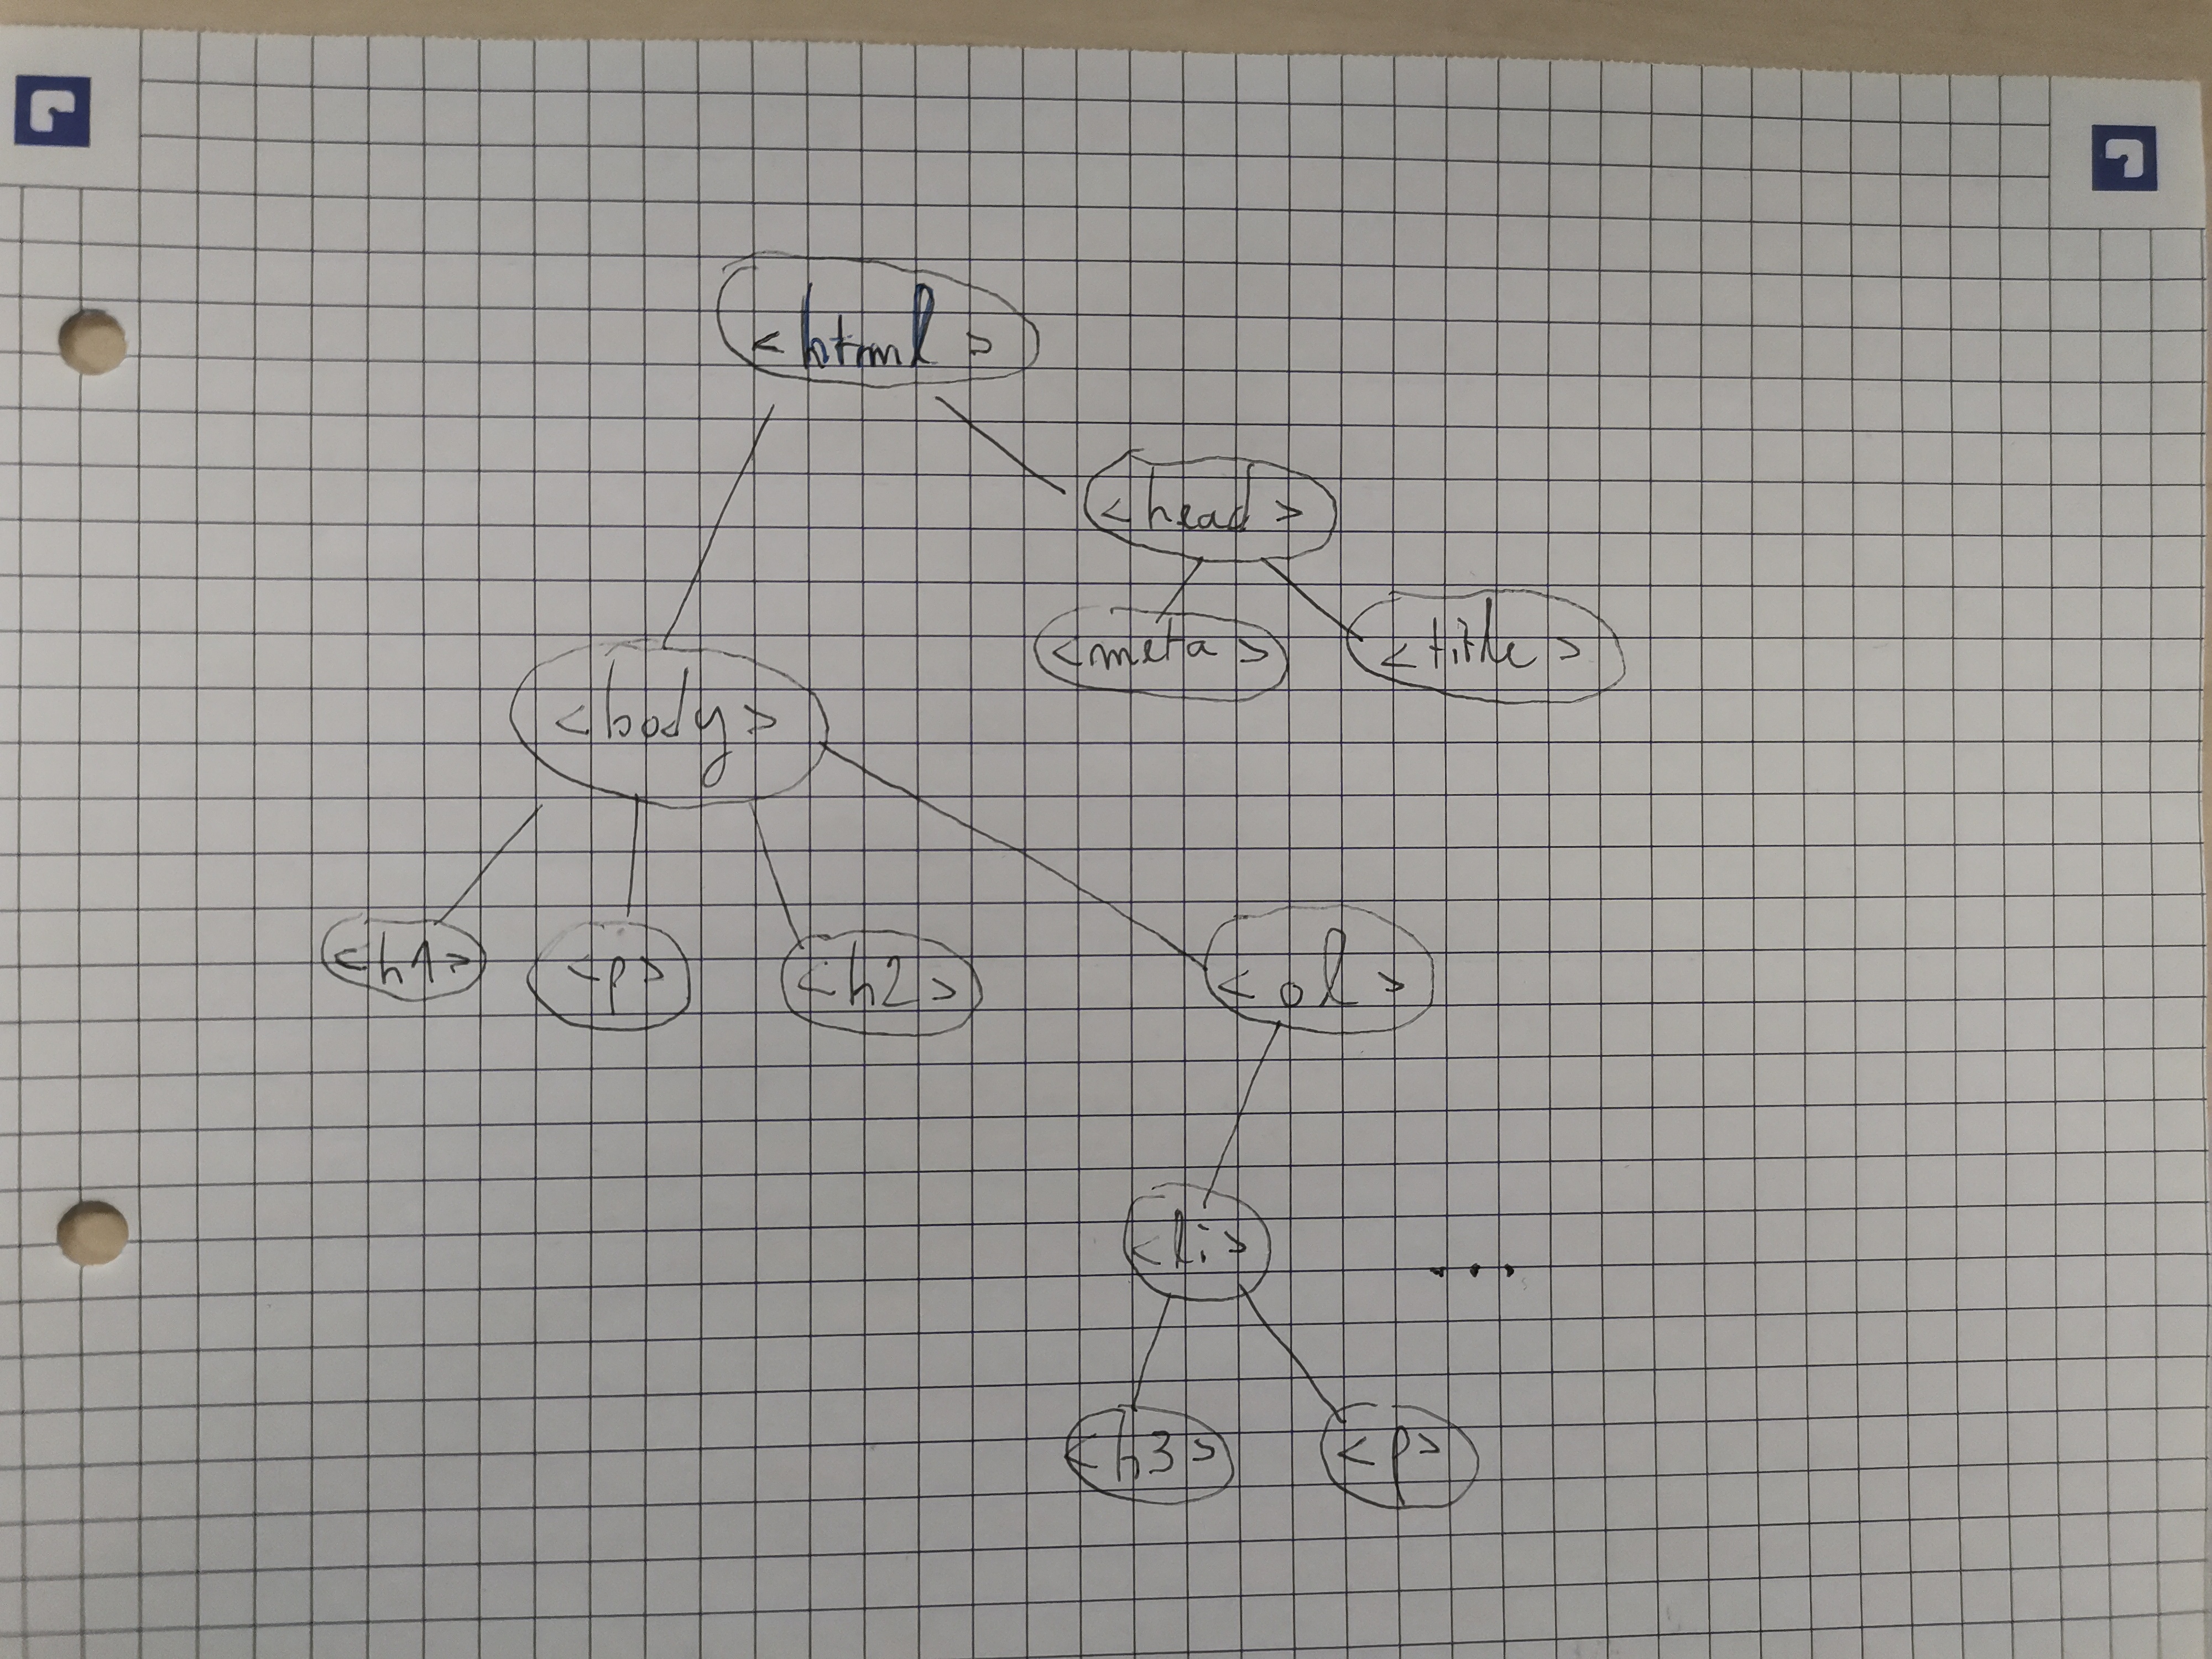 <html>
<head>
<meta> <title>
<body>
<h1> <p> <h2> <ol>
<li> ...
<h3> <p>